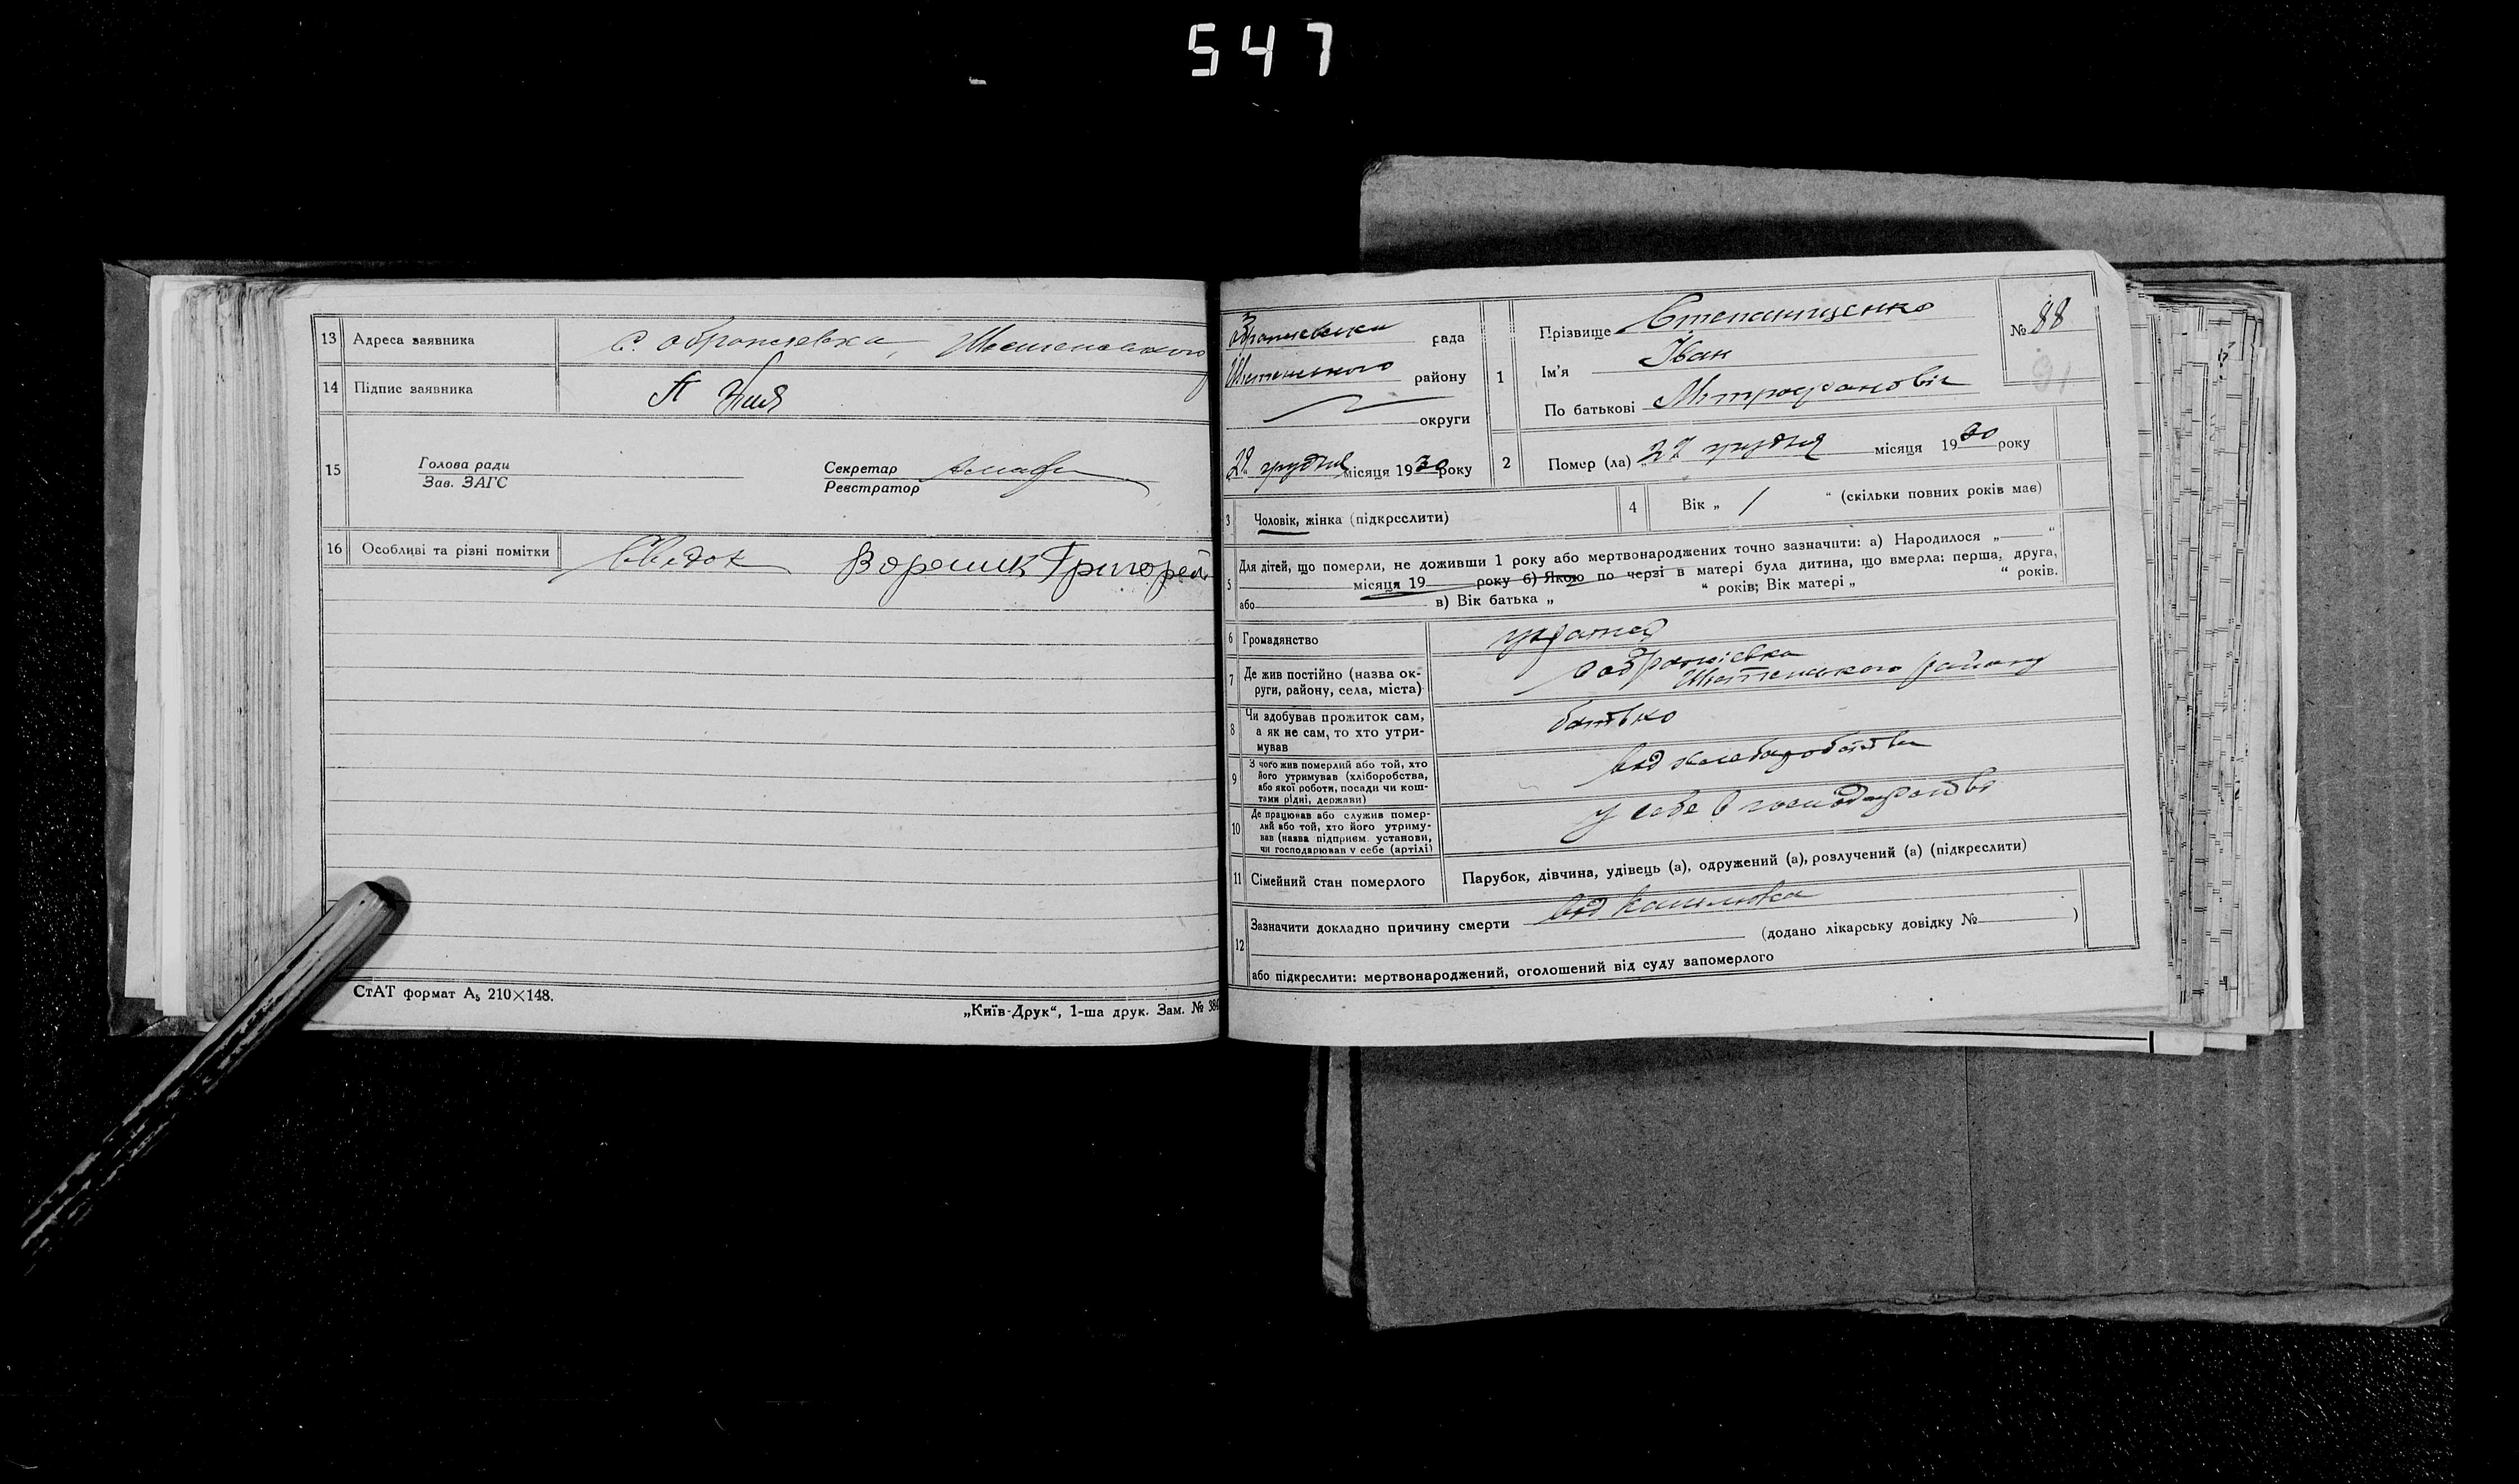 547
13 Адреса заявника с. Обра
14 Підпис заявника
15 Голова ради
Зав. ЗАГС
Секретар
Реєстратор
16 Особливі та різні помітки Сведок Ворошик Григорей
СтАТ формат А₅ 210×148.
„Київ-Друк“, 1-ша друк. Зам. № 38
рада
району
округи
29 грудня місяця 1930 року
1 Прізвище Степанищенко
Ім'я Іван
По батькові Митрофановіч
№ 88
91
2 Помер (ла) „27 грудня місяця 1930 року
3 Чоловік, жінка (підкреслити)
4 Вік „ 1 “ (скільки повних років має)
5 Для дітей, що померли, не доживши 1 року або мертвонароджених точно зазначити: а) Народилося „ “
місяця 19 року б) Якою по черзі в матері була дитина, що вмерла: перша, друга,
або в) Вік батька „ “ років; Вік матері „ “ років.
6 Громадянство
7 Де жив постійно (назва ок-
руги, району, села, міста)
району
8 Чи здобував прожиток сам,
а як не сам, то хто утри-
мував
батько
9 З чого жив померлий або той, хто
його утримував (хліборобства,
або якої роботи, посади чи кош-
тами рідні, держави)
від
10 Де працював або служив помер-
лий або той, хто його утриму-
вав (назва підприєм. установи,
чи господарював у себе (артілі)
у себе в господарстві
11 Сімейний стан померлого Парубок, дівчина, удівець (а), одружений (а), розлучений (а) (підкреслити)
12 Зазначити докладно причину смерти від кашлюка
(додано лікарську довідку № )
або підкреслити: мертвонароджений, оголошений від суду запомерлого